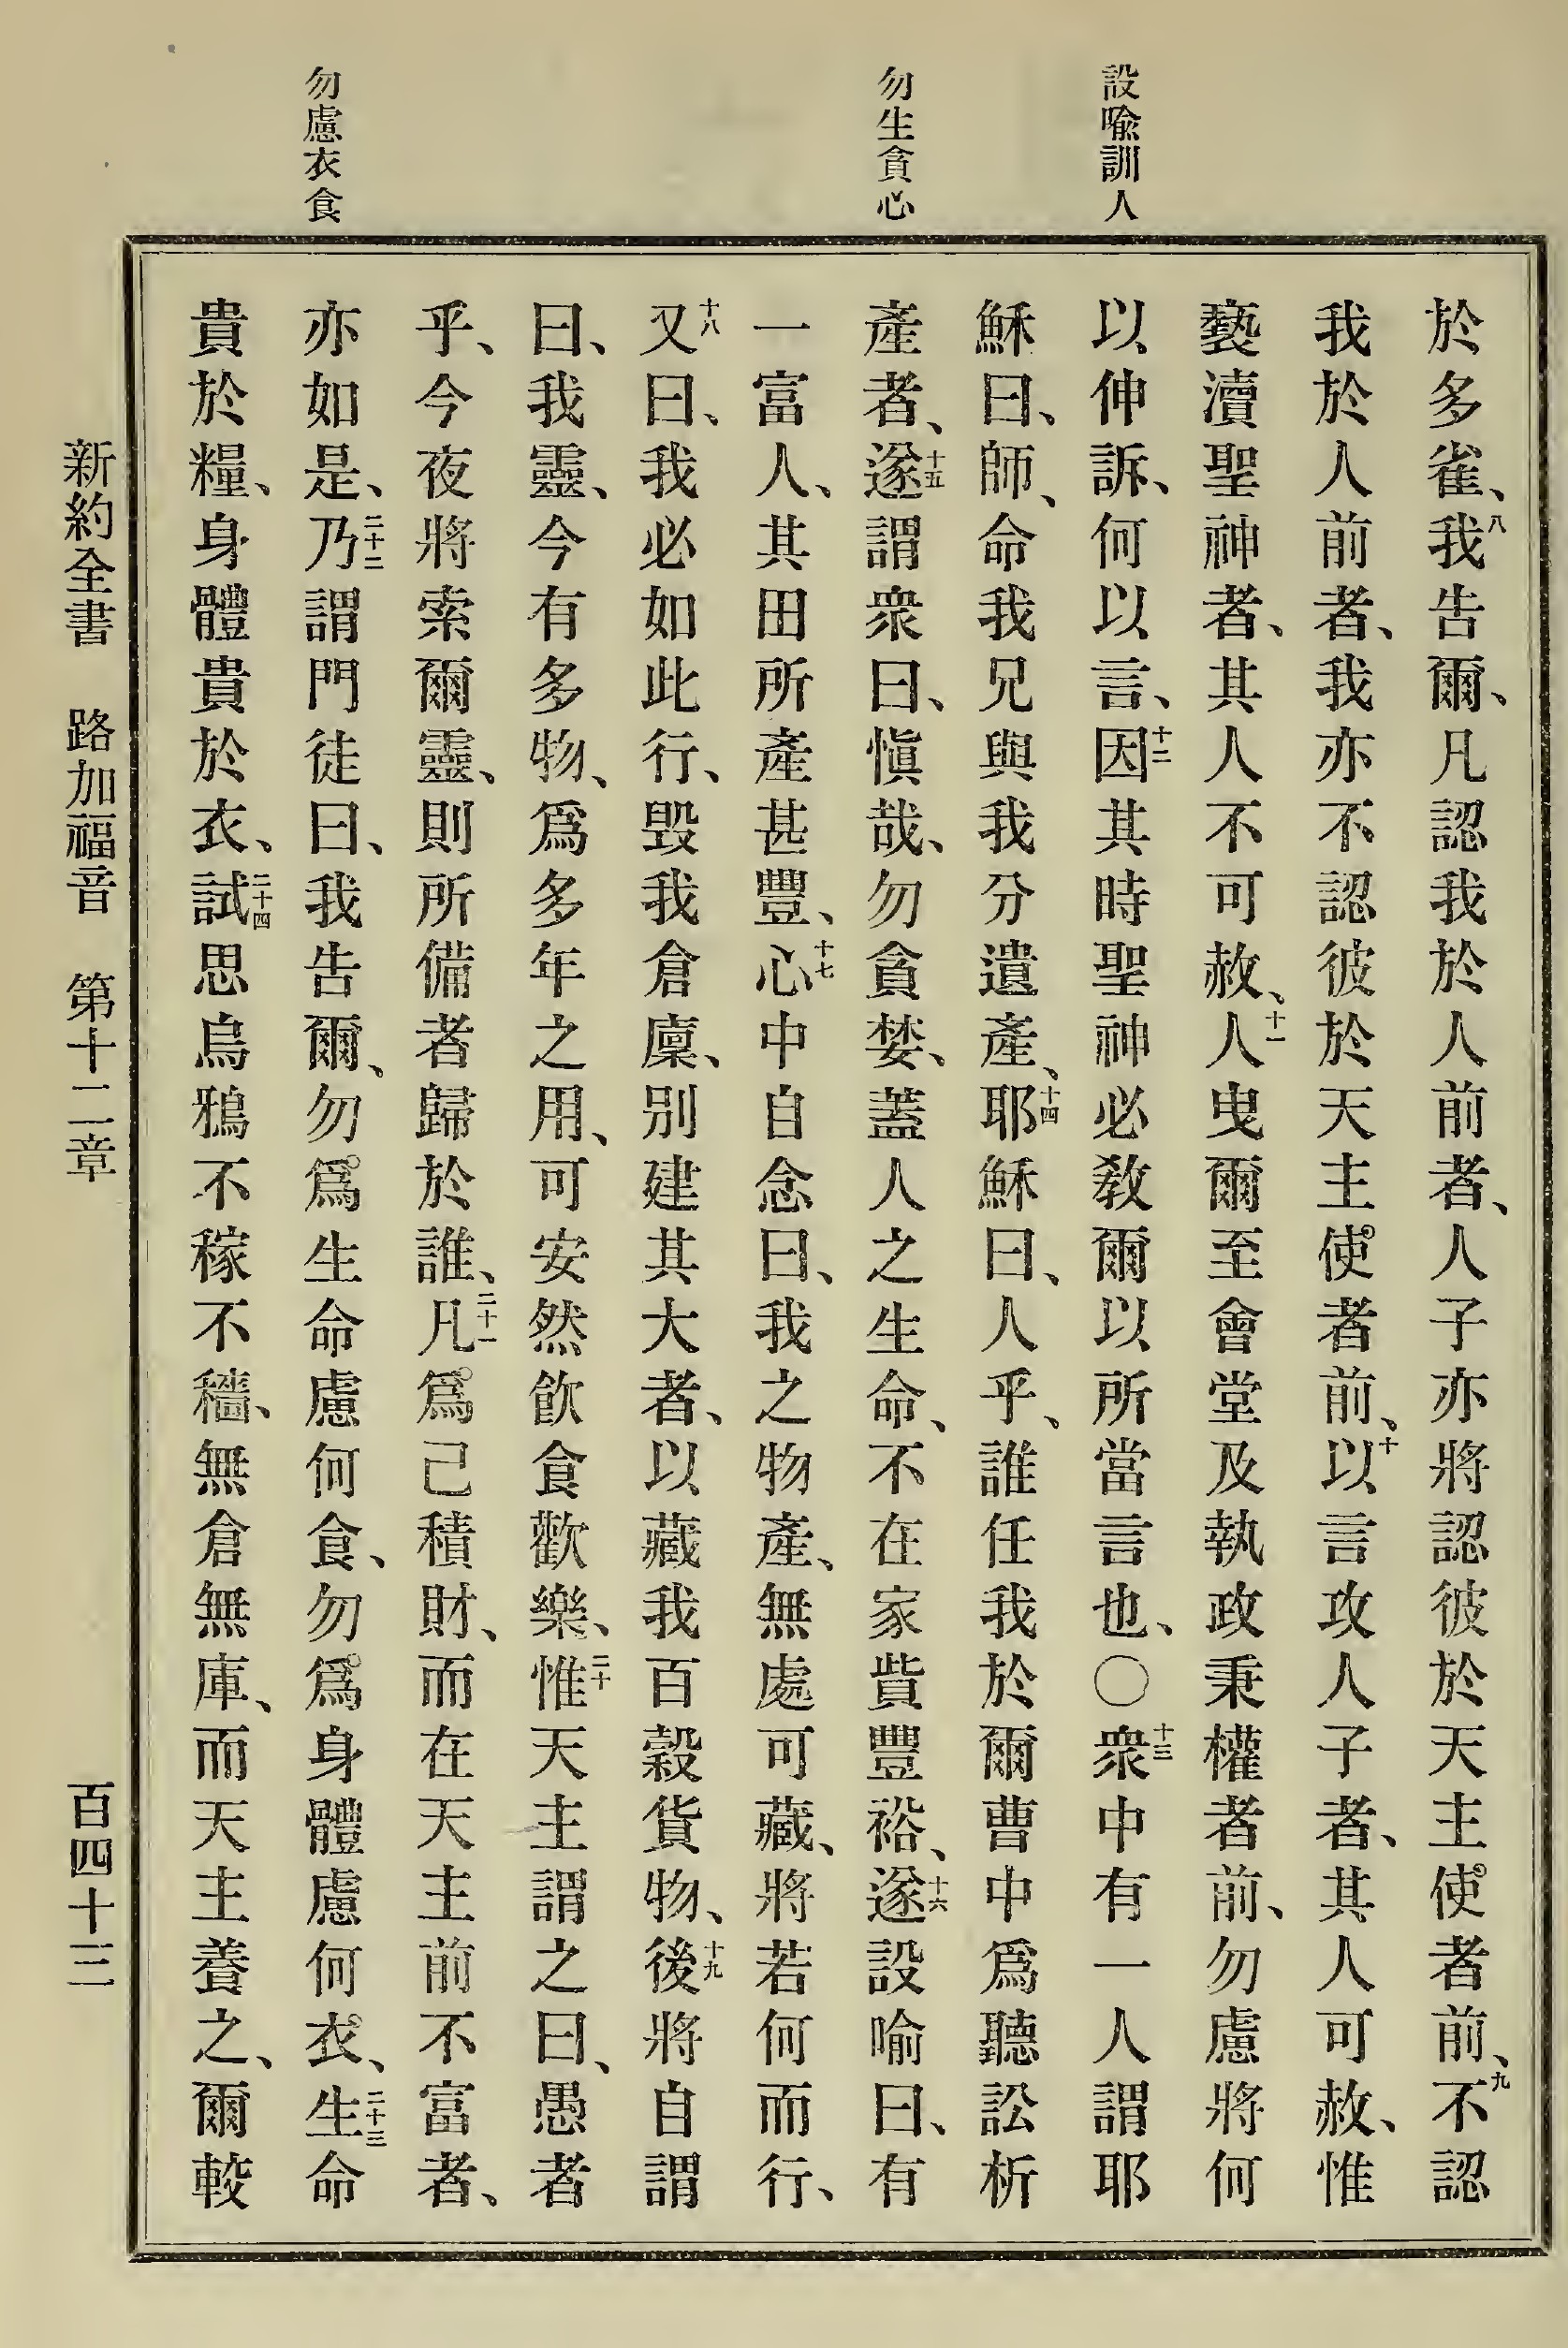 設喩訓人
勿生貪心
勿慮衣食
於多雀、八我告爾、凡認我於人前者、人子亦將認彼於天主使者前、九不認
我於人前者、我亦不認彼於天主使者前、十以言攻人子者、其人可赦、惟
褻瀆聖神者、其人不可赦、十一人曳爾至會堂及執政秉權者前、勿慮將何
以伸訴、何以言、十二因其時聖神必敎爾以所當言也、〇十三衆中有一人謂耶
穌曰、師、命我兄與我分遺產、十四耶穌曰、人乎、誰任我於爾曹中爲聽訟析
產者、十五遂謂衆曰、愼哉、勿貪婪、蓋人之生命、不在家貲豐裕、十六遂設喻曰、有
一富人、其田所產甚豐、十七心中自念曰、我之物產、無處可藏、將若何而行、
十八又曰、我必如此行、毀我倉廩、別建其大者、以藏我百穀貨物、十九後將自謂
曰、我靈、今有多物、爲多年之用、可安然飮食歡樂、二十惟天主謂之曰、愚者
乎、今夜將索爾靈、則所備者歸於誰、二十一凡爲己積財、而在天主前不富者、
亦如是、二十二乃謂門徒曰、我告爾、勿爲生命慮何食、勿爲身體慮何衣、二十三生命
貴於糧、身體貴於衣、二十四試思烏鴉不稼不穡、無倉無庫、而天主養之、爾較
新約全書 路加福音 第十二章 百四十三